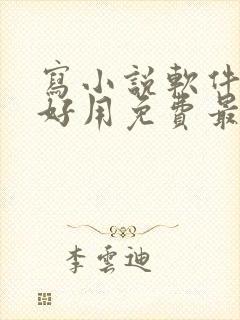 寫小說軟件
好用免費最
李雲迪